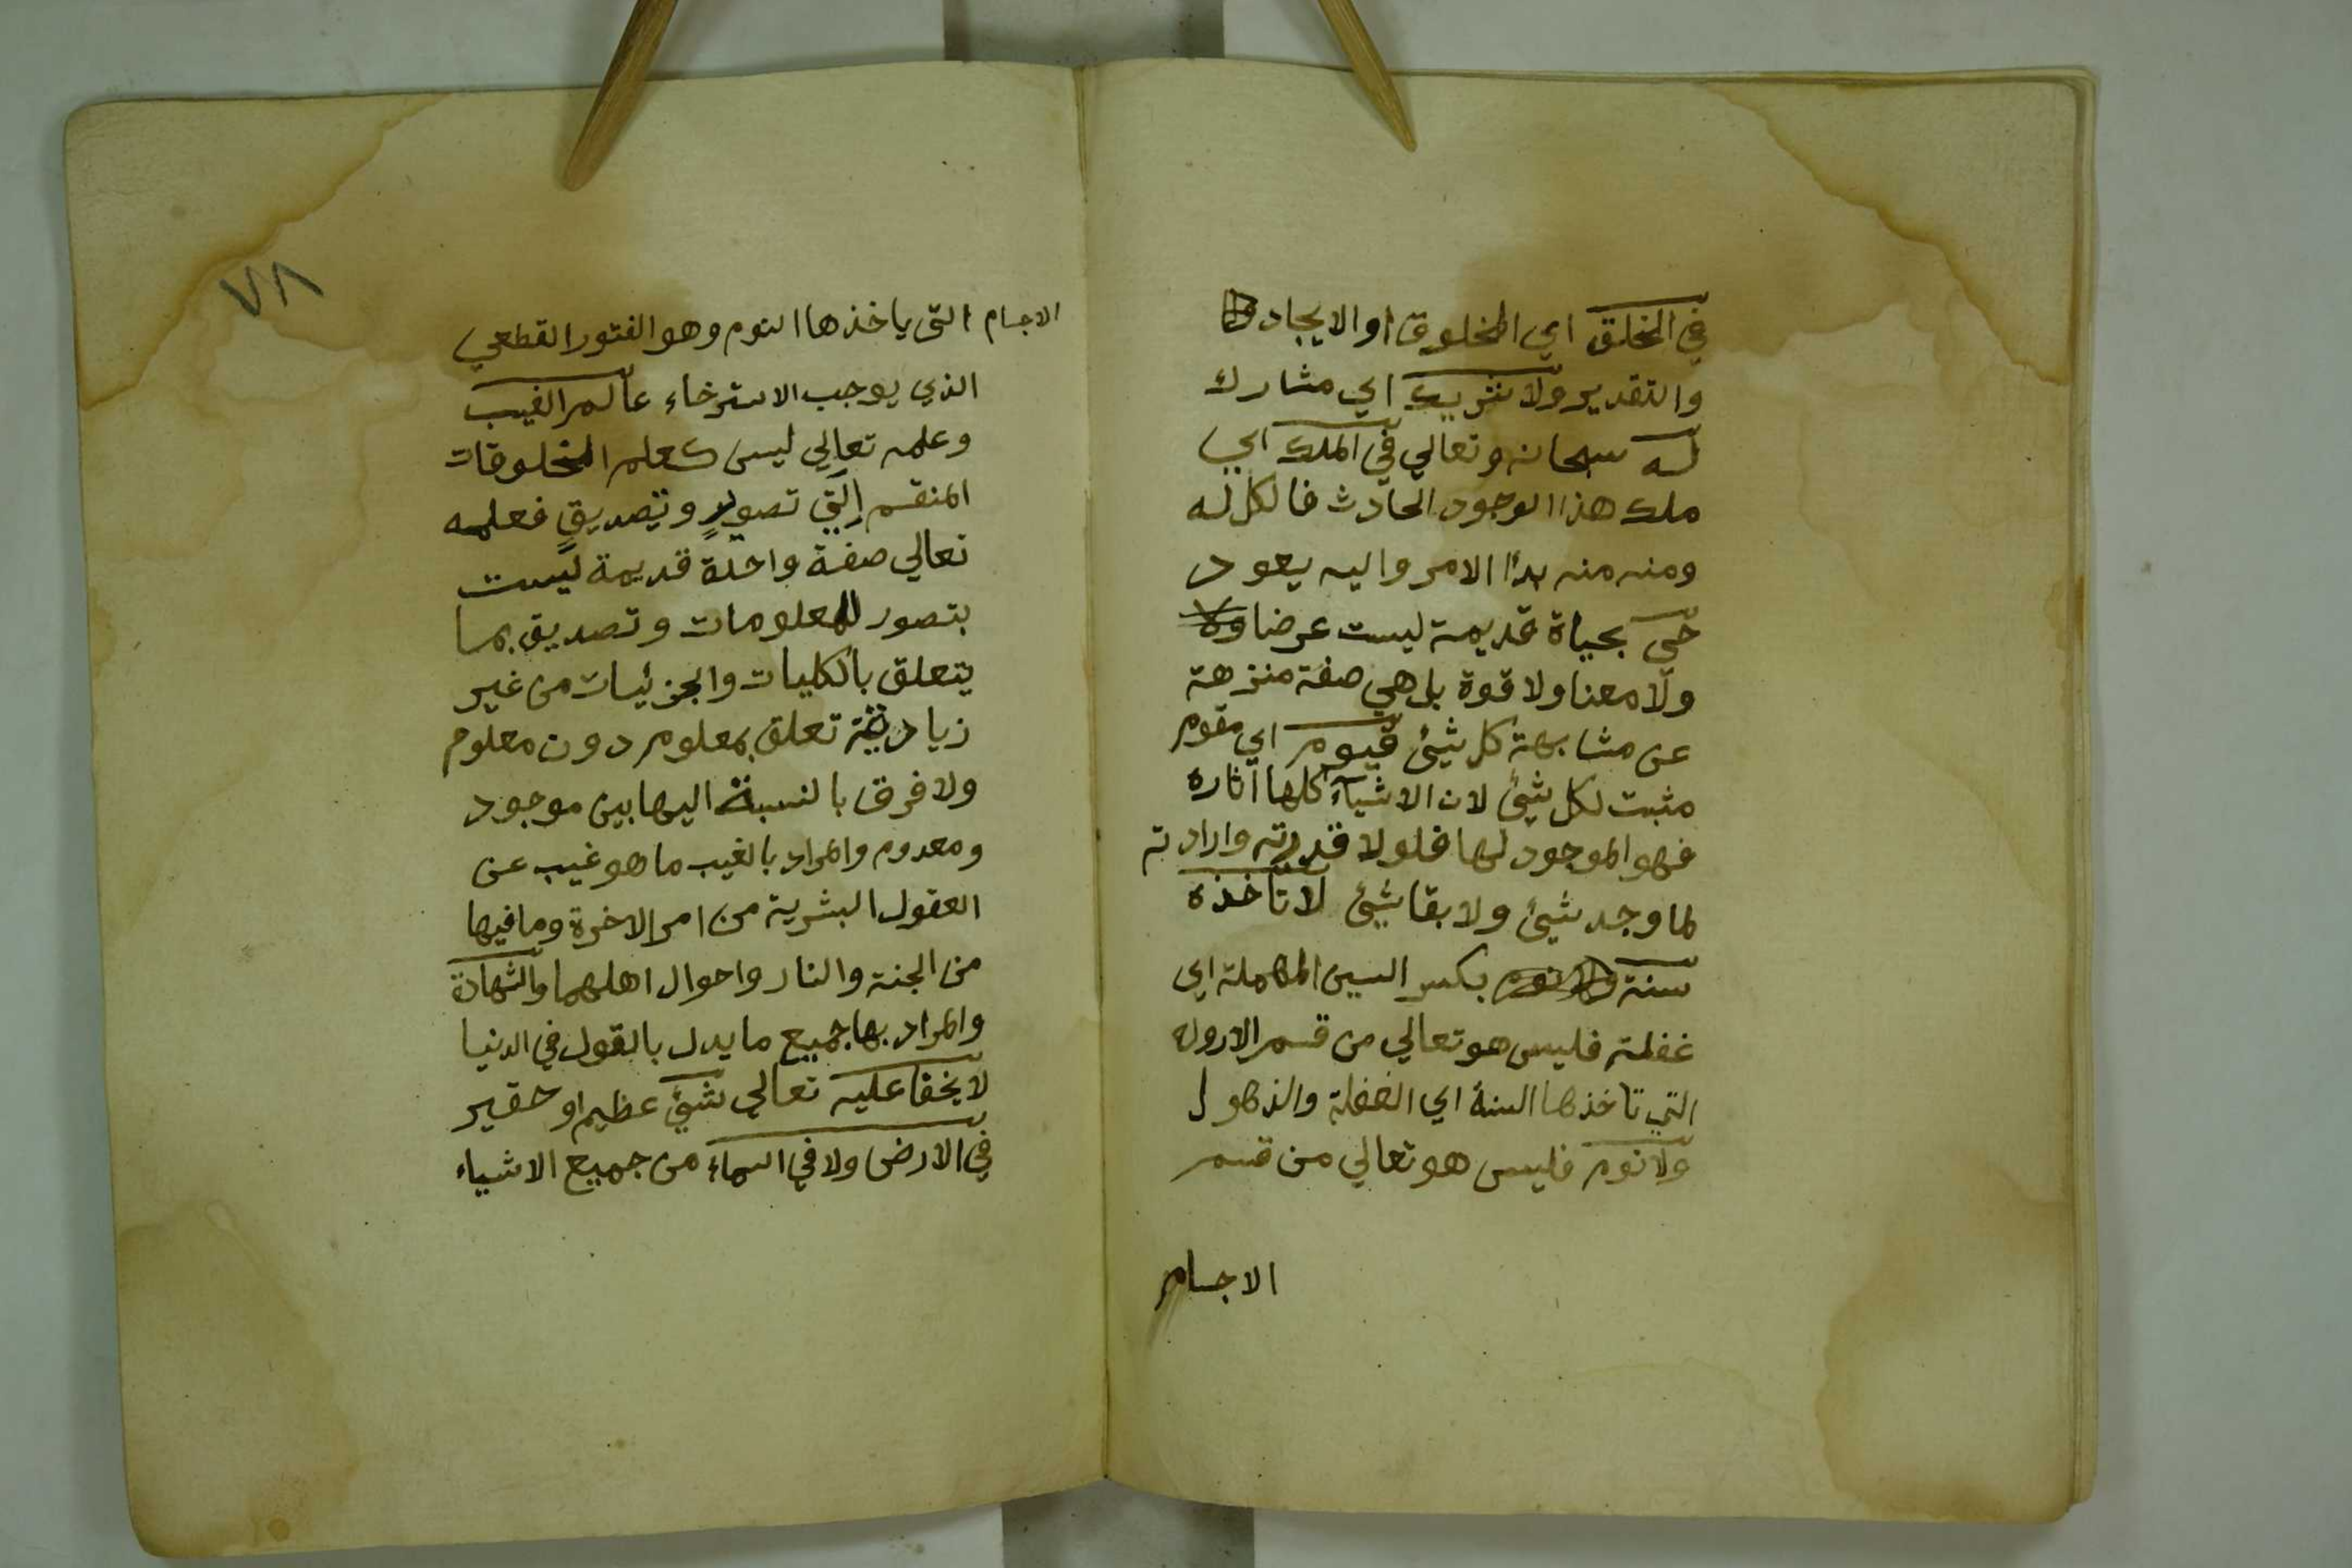 في الخلق اي المخلوق او الايجاد
والتقدير ولا شريك اي مشارك
له سبحانه وتعالي في الملك اي
ملك هذا الوجود الحادث فالكل له
ومنه منه بدأ الامر واليه يعود
حي بحياة قديمة ليست عرضا ولا
ولا معنا ولا قوة بل هي صفة منزهة
عن مشابهة كل شيئ قيوم اي مقوم
مثبت لكل شيئ لان الاشيآء كلها اثاره
فهو الموجود لها فلولا قدرته وارادته
لما وجد شيئ ولا بقا شيئ لا تأخذه
سنة ولا نوم بكسر السين المهملة اي
غفلة فليس هو تعالي من قسم الاروله
التي تاخذها السنة اي الغفلة والذهول
ولا نوم فليس هو تعالي من قسم
الاجسام
٧٨
الاجسام التي ياخذها النوم وهو الفتور القطعي
الذي يوجب الاسترخاء عالم الغيب
وعلمه تعالي ليس كعلم المخلوقات
المنقسم الي تصوير وتصديق فعلمه
تعالي صفة واحدة قديمة ليست
بتصور للمعلومات وتصديق بما
يتعلق بالكليات والجزئيات من غير
زيادة تعلق بمعلوم دون معلوم
ولا فرق بالنسبة اليها بين موجود
ومعدوم والمراد بالغيب ما هو غيب عن
العقول البشرية من امر الاخرة وما فيها
من الجنة والنار واحوال اهلهما والشهادة
والمراد بها جميع ما يدل بالقول في الدنيا
لا يخفا عليه تعالي شيئ عظيم او حقير
في الارض ولا في السماء من جميع الاشياء